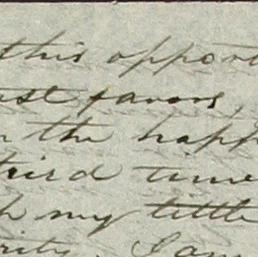 this oppor
ast favors,
n the happ
third time
h my little
rity. I am